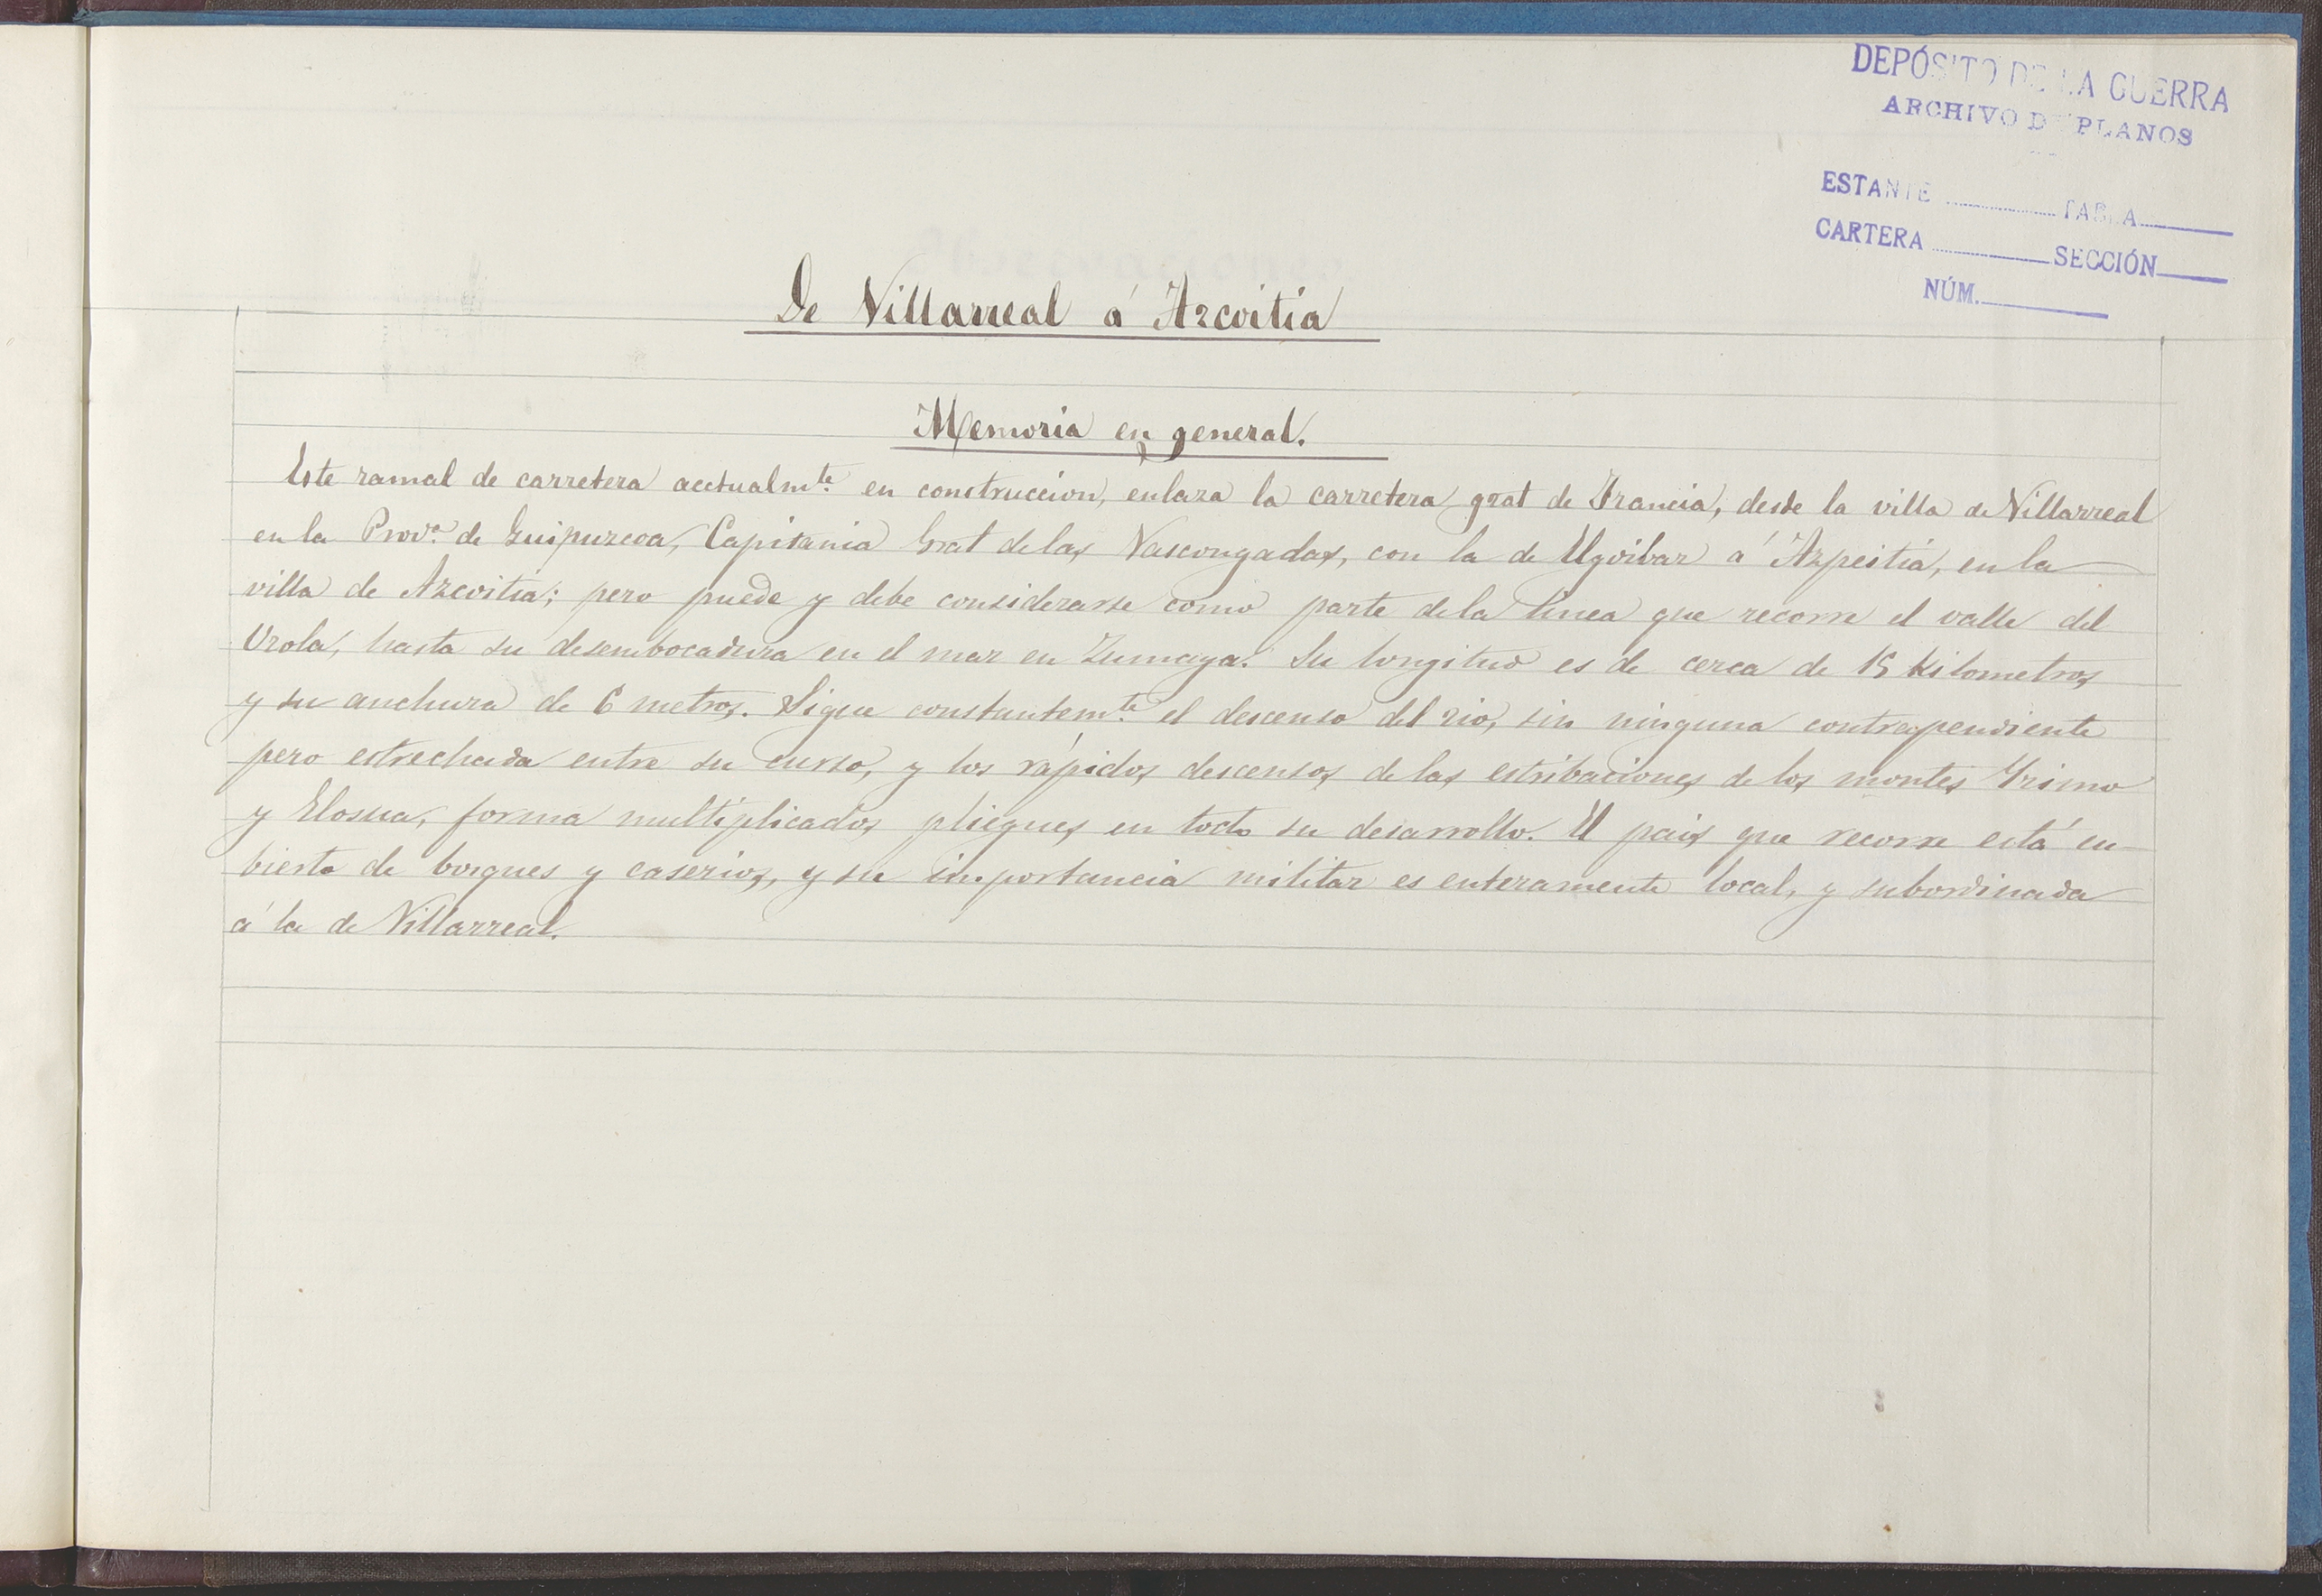 DEPÓSITO DE LA GUERRA
ARCHIVO DE PLANOS
ESTANTE TABLA
CARTERA SECCIÓN
NÚM.
De Villarreal á Azcoitia
Memoria en general.
Este ramal de carretera acctualmte. en construccion, enlaza la carretera gral de Francia, desde la villa de Villarreal
en la Prova. de Guipuzcoa, Capitania Gral de las Vascongadas, con la de Elgoibar á Azpeitia, en la
villa de Azcoitia; pero puede y debe considerarse como parte de la linea que recorre el valle del
Urola, hasta su desembocadura en el mar en Zumaya. Su longitud es de cerca de 15 Kilometros
y su anchura de 6 metros. Sigue constantemte. el descenso del rio, sin ninguna contrapendiente
pero estrechada entre su curso, y los rápidos descensos de las estribaciones de los montes Yrimo
y Elosua, forma multiplicados pliegues en todo su desarrollo. El pais que recorre está cu-
bierto de bosques y caserios, y su importancia militar es enteramente local, y subordinada
á la de Villarreal.